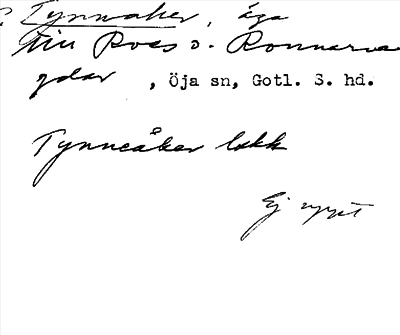 Tynnaker, äga
till Roes o. Ronnarve
gdar, Öja sn, Gotl. S. hd.
Tynneåker lokk
Ej uppt